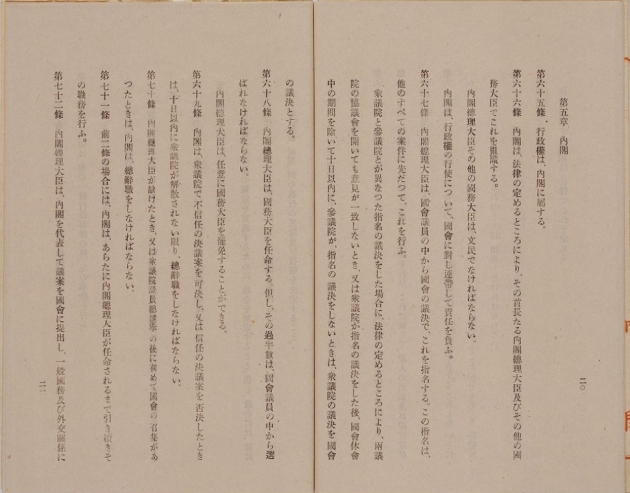 第五章　內閣
第六十五條　行政權は、內閣に屬する。
第六十六條　內閣は、法律の定めるところにより、その首長たる內閣總理大臣及びその他の國
務大臣でこれを組織する。
內閣總理大臣その他の國務大臣は、文民でなければならない。
內閣は、行政權の行使について、國會に對し連帶して責任を負ふ。
第六十七條　內閣總理大臣は、國會議員の中から國會の議決で、これを指名する。この指名は、
他のすべての案件に先だつて、これを行ふ。
衆議院と參議院とが異なつた指名の議決をした場合に、法律の定めるところにより、兩議
院の協議會を開いても意見が一致しないとき、又は衆議院が指名の議決をした後、國會休會
中の期間を除いて十日以內に、參議院が、指名の議決をしないときは、衆議院の議決を國會
二〇
の議決とする。
第六十八條　內閣總理大臣は、國務大臣を任命する。但し、その過半數は、國會議員の中から選
ばれなければならない。
內閣總理大臣は、任意に國務大臣を罷免することができる。
第六十九條　內閣は、衆議院で不信任の決議案を可決し、又は信任の決議案を否決したとき
は、十日以內に衆議院が解散されない限り、總辭職をしなければならない。
第七十條　內閣總理大臣が缺けたとき、又は衆議院議員總選擧の後に初めて國會の召集があ
つたときは、內閣は、總辭職をしなければならない。
第七十一條　前二條の場合には、內閣は、あらたに內閣總理大臣が任命されるまで引き續きそ
の職務を行ふ。
第七十二條　內閣總理大臣は、內閣を代表して議案を國會に提出し、一般國務及び外交關係に
二一